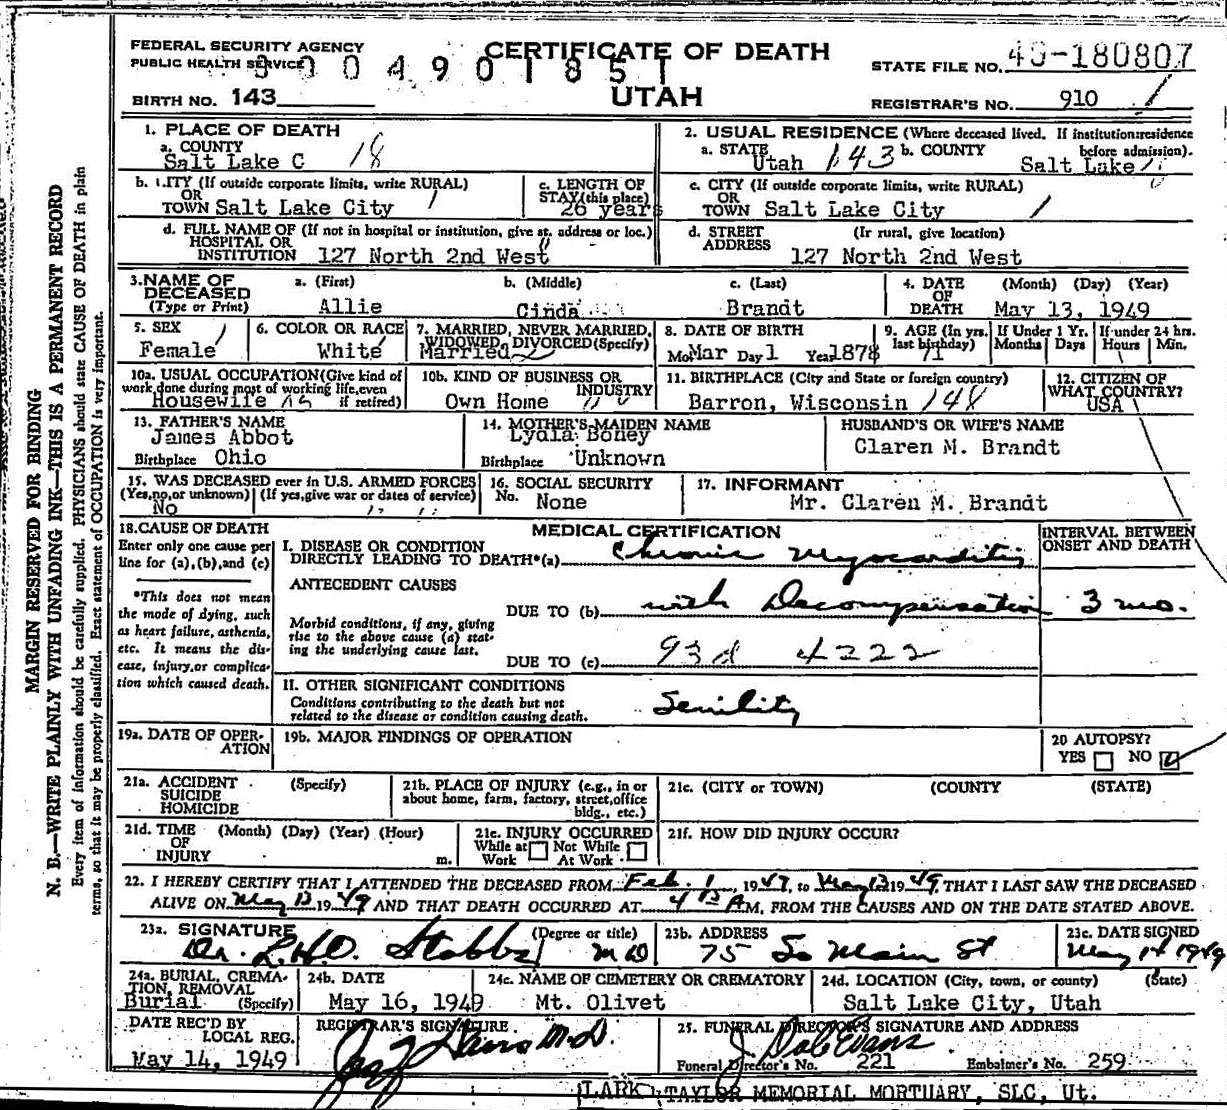 FEDERAL SECURITY AGENCY
PUBLIC HEALTH SERVICE
3 0 0 4 9 0 1 8 5 1
CERTIFICATE OF DEATH
STATE FILE NO. 49-180807
BIRTH NO. 143
UTAH
REGISTRAR'S NO. 910
1. PLACE OF DEATH
a. COUNTY
Salt Lake C 18
2. USUAL RESIDENCE (Where deceased lived. If institution:residence before admission).
a. STATE Utah 143 b. COUNTY Salt Lake
b. CITY (If outside corporate limits, write RURAL)
OR
TOWN Salt Lake City
c. LENGTH OF
STAY (this place)
26 years
c. CITY (If outside corporate limits, write RURAL)
OR
TOWN Salt Lake City
d. FULL NAME OF (If not in hospital or institution, give st. address or loc.)
HOSPITAL OR
INSTITUTION 127 North 2nd West
d. STREET (Ir rural, give location)
ADDRESS
127 North 2nd West
3. NAME OF
DECEASED
(Type or Print)
a. (First) b. (Middle) c. (Last)
Allie Cinda Brandt
4. DATE (Month) (Day) (Year)
OF
DEATH May 13, 1949
5. SEX
Female
6. COLOR OR RACE
White
7. MARRIED, NEVER MARRIED,
WIDOWED, DIVORCED (Specify)
Married
8. DATE OF BIRTH
Mo. Mar Day 1 Year 1878
9. AGE (In yrs. last birthday)
71
If Under 1 Yr.
Months Days
If under 24 hrs.
Hours Min.
10a. USUAL OCCUPATION (Give kind of
work done during most of working life, even
if retired)
Housewife
10b. KIND OF BUSINESS OR
INDUSTRY
Own Home
11. BIRTHPLACE (City and State or foreign country)
Barron, Wisconsin 148
12. CITIZEN OF
WHAT COUNTRY?
USA
13. FATHER'S NAME
James Abbot
Birthplace Ohio
14. MOTHER'S MAIDEN NAME
Lydia Boney
Birthplace Unknown
HUSBAND'S OR WIFE'S NAME
Claren M. Brandt
15. WAS DECEASED ever in U.S. ARMED FORCES
(Yes, no, or unknown) (If yes, give war or dates of service)
No
16. SOCIAL SECURITY
No. None
17. INFORMANT
Mr. Claren M. Brandt
18. CAUSE OF DEATH
Enter only one cause per
line for (a), (b), and (c)
*This does not mean
the mode of dying, such
as heart failure, asthenia,
etc. It means the dis-
ease, injury, or complica-
tion which caused death.
MEDICAL CERTIFICATION
INTERVAL BETWEEN
ONSET AND DEATH
I. DISEASE OR CONDITION
DIRECTLY LEADING TO DEATH*(a) Chronic Myocarditis
ANTECEDENT CAUSES
DUE TO (b) with Decompensation 3 mo.
Morbid conditions, if any, giving
rise to the above cause (a) stat-
ing the underlying cause last.
DUE TO (c) 93d 4222
II. OTHER SIGNIFICANT CONDITIONS
Conditions contributing to the death but not
related to the disease or condition causing death.
Senility
19a. DATE OF OPER-
ATION
19b. MAJOR FINDINGS OF OPERATION
20 AUTOPSY?
YES NO
21a. ACCIDENT (Specify)
SUICIDE
HOMICIDE
21b. PLACE OF INJURY (e.g., in or
about home, farm, factory, street, office
bldg., etc.)
21c. (CITY or TOWN) (COUNTY) (STATE)
21d. TIME (Month) (Day) (Year) (Hour)
OF
INJURY m.
21e. INJURY OCCURRED
While at Not While
Work At Work
21f. HOW DID INJURY OCCUR?
22. I HEREBY CERTIFY THAT I ATTENDED THE DECEASED FROM Feb. 1, 1949, to May 13 1949, THAT I LAST SAW THE DECEASED
ALIVE ON May 13 1949 AND THAT DEATH OCCURRED AT 4 A M, FROM THE CAUSES AND ON THE DATE STATED ABOVE.
23a. SIGNATURE (Degree or title)
Dr. L.H.O. Stobbs M D
23b. ADDRESS
75 So Main St
23c. DATE SIGNED
May 14 1949
24a. BURIAL, CREMA-
TION, REMOVAL
Burial (Specify)
24b. DATE
May 16, 1949
24c. NAME OF CEMETERY OR CREMATORY
Mt. Olivet
24d. LOCATION (City, town, or county) (State)
Salt Lake City, Utah
DATE REC'D BY
LOCAL REG.
May 14, 1949
REGISTRAR'S SIGNATURE
M.D.
25. FUNERAL DIRECTOR'S SIGNATURE AND ADDRESS
J. Dale Evans
Funeral Director's No. 221 Embalmer's No. 259
LARK TAYLOR MEMORIAL MORTUARY, SLC, Ut.
MARGIN RESERVED FOR BINDING
N. B.—WRITE PLAINLY WITH UNFADING INK—THIS IS A PERMANENT RECORD
Every item of information should be carefully supplied. PHYSICIANS should state CAUSE OF DEATH in plain
terms, so that it may be properly classified. Exact statement of OCCUPATION is very important.